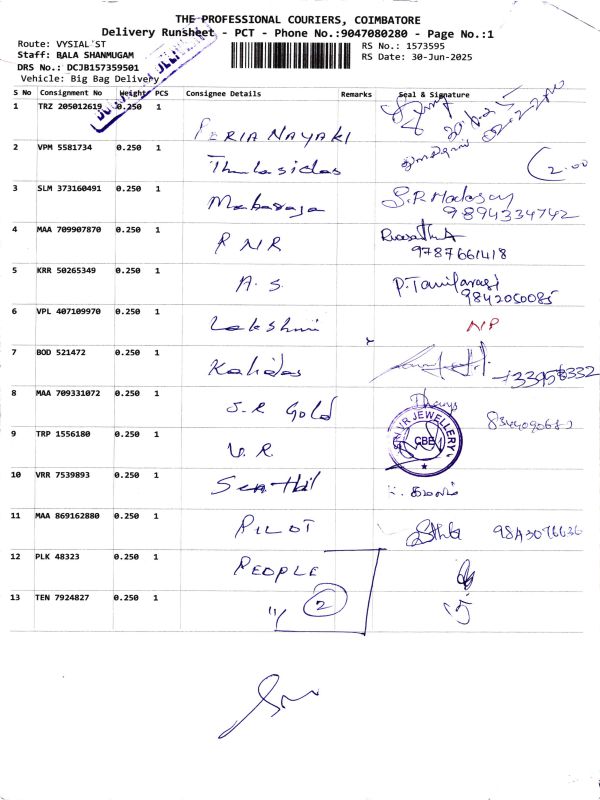 THE PROFESSIONAL COURIERS, COIMBATORE
Delivery Runsheet - PCT - Phone No.:9047080280 - Page No.:1
Route: VYSIAL ST
Staff: BALA SHANMUGAM
DRS No.: DCJB157359501
Vehicle: Big Bag Delivery
RS No.: 1573595
RS Date: 30-Jun-2025
S No Consignment No Weight PCS Consignee Details Remarks Seal & Signature
1 TRZ 205012619 0.250 1 PERIANAYAKI
2 VPM 5581734 0.250 1 Thulasidas 2.00
3 SLM 373160491 0.250 1 Maharaja S.R Madasamy 9894334742
4 MAA 709907870 0.250 1 R NR 9787661418
5 KRR 50265349 0.250 1 A. S. P. Tamilarasi 9842050085
6 VPL 407109970 0.250 1 Lakshmi NP
7 BOD 521472 0.250 1 Kalidas
8 MAA 709331072 0.250 1 S.R Gold
9 TRP 1556180 0.250 1 V.R. VR JEWELLERY CBE
10 VRR 7539893 0.250 1 Senthil
11 MAA 869162880 0.250 1 PILOT
12 PLK 48323 0.250 1 PEOPLE
13 TEN 7924827 0.250 1 " 2